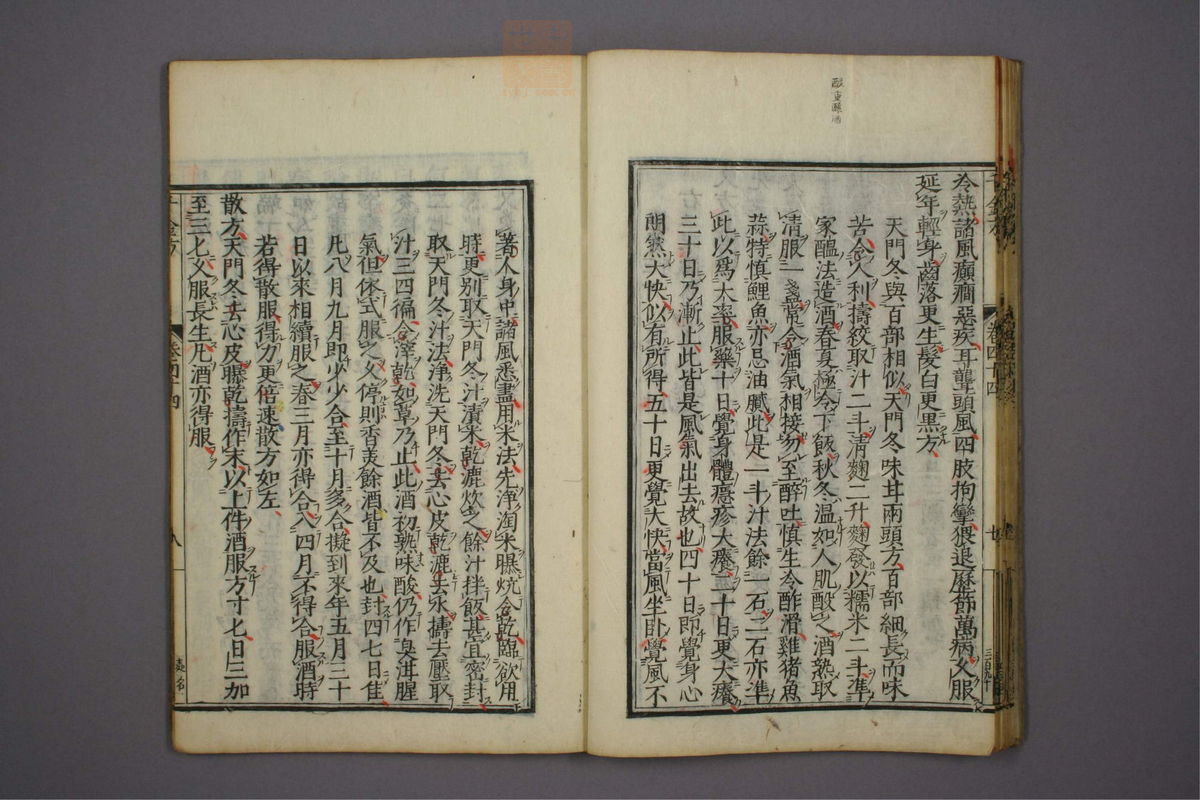 冷熱諸風癲癎惡疾耳聾頭風四肢拘攣猥退歷節萬病久服
延年輕身齒落更生髮白更黑方
天門冬與百部相似天門冬味甘兩頭方百部細長而味
苦令人利擣絞取汁二斗漬麴二升麴發以糯米二斗準
家醖法造酒春夏極冷下飯秋冬温如人肌酘之酒熟取
清服一盞常令酒氣相接勿至醉吐慎生冷酢滑雞猪魚
蒜特慎鯉魚亦忌油膩此是一斗汁法餘一石二石亦準
此以爲大率服藥十日覺身體癮疹大癢二十日更大癢
三十日乃漸止此皆是風氣出去故也四十日即覺身心
朗然大快似有所得五十日更覺大快當風坐卧覺風不
著人身中諸風悉盡用米法先淨淘米曝炕令乾臨欲用
時更别取天門冬汁漬米乾漉炊之餘汁拌飯甚宜密封
取天門冬汁法淨洗天門冬去心皮乾漉去水擣去壓取
汁三四徧令滓乾如草乃止此酒初熟味酸仍作臭泔腥
氣但依式服之久停則香美餘酒皆不及也封四七日佳
凡八月九月即少少合至十月多合擬到來年五月三十
日以來相續服之春三月亦得合入四月不得合服酒時
若得散服得力更倍速散方如左
散方天門冬去心皮曝乾擣作末以上件酒服方寸匕日三加
至三匕久服長生凡酒亦得服
千金方
卷四十四
八